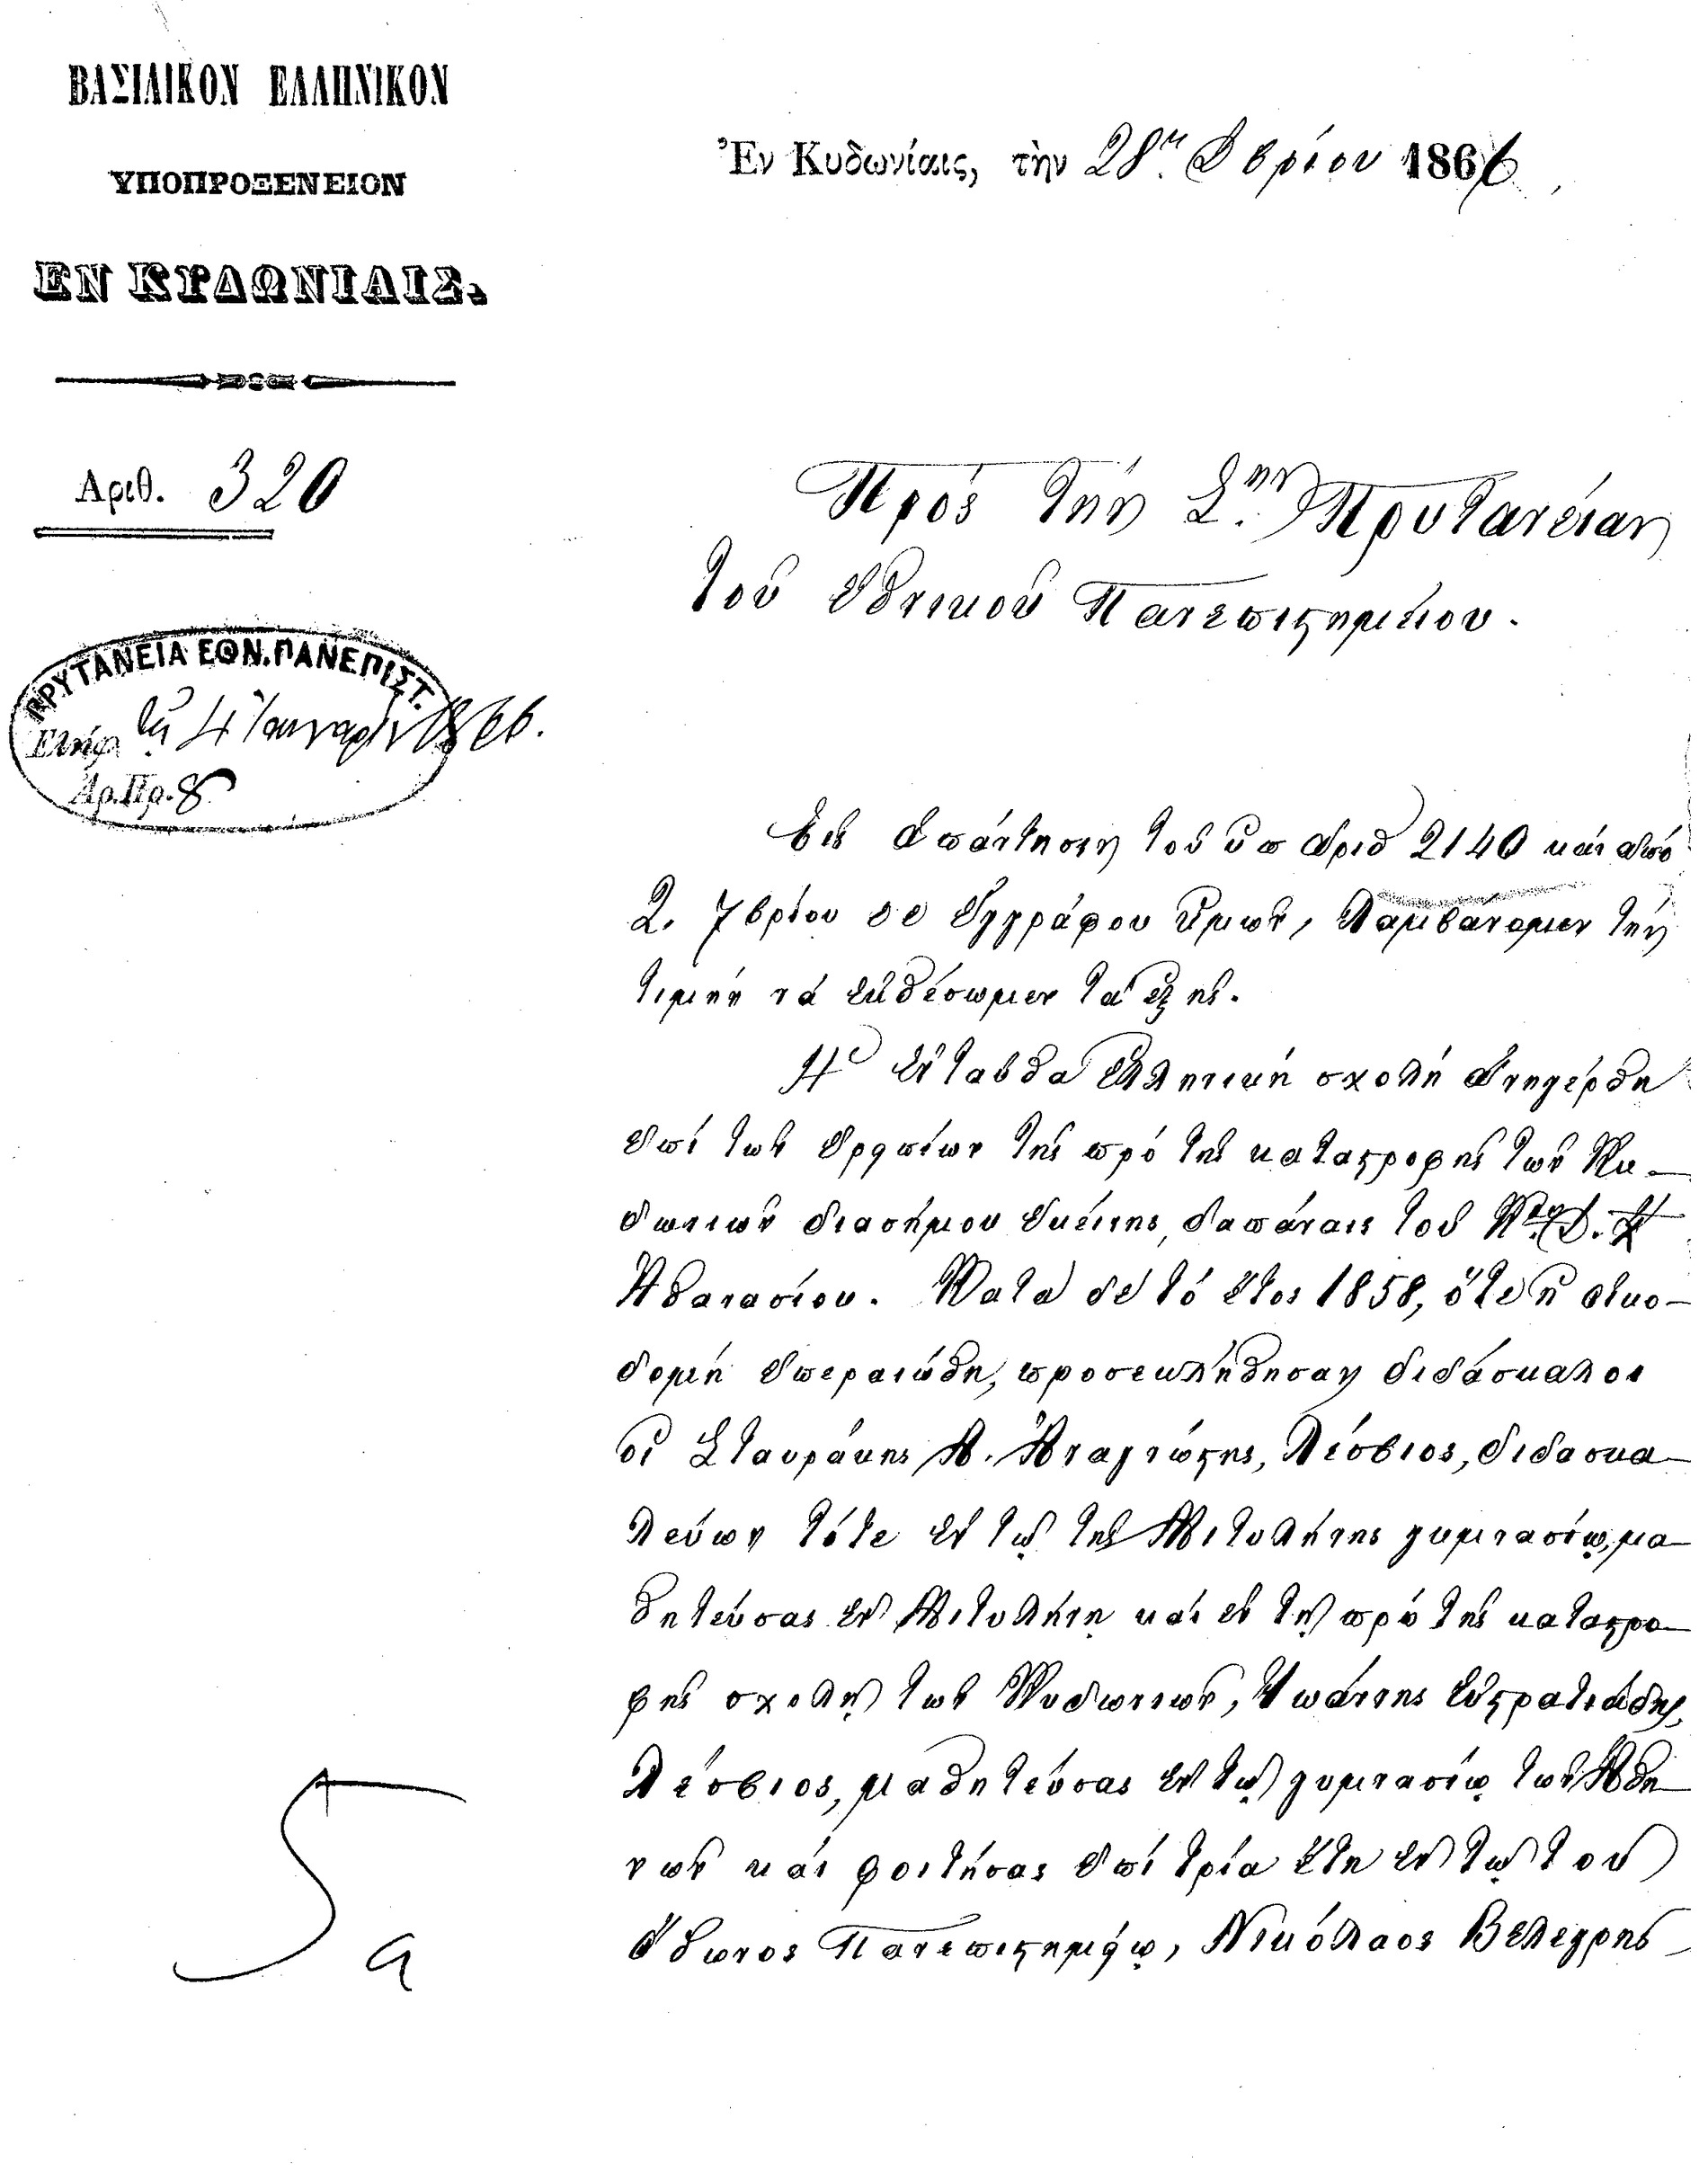 ΒΑΣΙΛΙΚΟΝ ΕΛΛΗΝΙΚΟΝ
ΥΠΟΠΡΟΞΕΝΕΙΟΝ
ΕΝ ΚΥΔΩΝΙΑΙΣ.
Ἐν Κυδωνίαις, τὴν 28ην 1866
Αριθ. 320
Πρός τήν Σην Πρυτανείαν
τοῦ Ἐθνικοῦ Πανεπιστημείου.
ΠΡΥΤΑΝΕΙΑ ΕΘΝ. ΠΑΝΕΠΙΣΤ.
τῇ 4 Ἰανουαρίου 1866.
Ἀρ. Πρ. 8
Εἰς ἀπάντησιν τοῦ ὑπ ἀριθ 2140 καί ἀπό
2. 7βρίου ἐ ἐ ἐγγράφου ὑμῶν, λαμβάνομεν τήν
τιμήν νά ἐκθέσωμεν τά ἑξῆς.
Ἡ ἐνταῦθα ἑλληνική σχολή ἀνηγέρθη
ἐπί τῶν ἐρειπίων τῆς πρό τῆς καταστροφῆς τῶν Κυ-
δωνιῶν διασήμου ἐκείνης, δαπάναις τοῦ
Ἀθανασίου. Κατά δέ τό ἔτος 1858, ὅτε ἡ οἰκο-
δομή ἐπεραιώθη, προσεκλήθησαν διδάσκαλοι
οἱ Σταυράκης Α. Ἀναγνώστης, Λέσβιος, διδασκα-
λεύων τότε ἐν τῷ τῆς Μιτυλήνης γυμνασίῳ, μα-
θητεύσας ἐν Μιτυλήνῃ καί ἐν τῇ πρό τῆς καταστρο-
φῆς σχολῇ τῶν Κυδωνιῶν, Ἰωάννης Εὐστρατιάδης,
Λέσβιος, μαθητεύσας ἐν τῷ γυμνασίῳ τῶν Ἀθη-
νῶν καί φοιτήσας ἐπί τρία ἔτη ἐν τῷ τοῦ
Ὄθωνος Πανεπιστημίῳ, Νικόλαος Βελεγρῆς
5 a